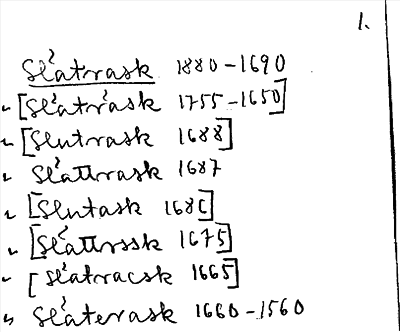 1.
Slåtrask 1880-1690
[Slåtråsk 1755-1650]
[Slutrask 1688]
Slåttrask 1687
[Slutask 168[]
[Slåttrssk 1675]
[Slåtracsk 1665]
Slåterask 1660-1560